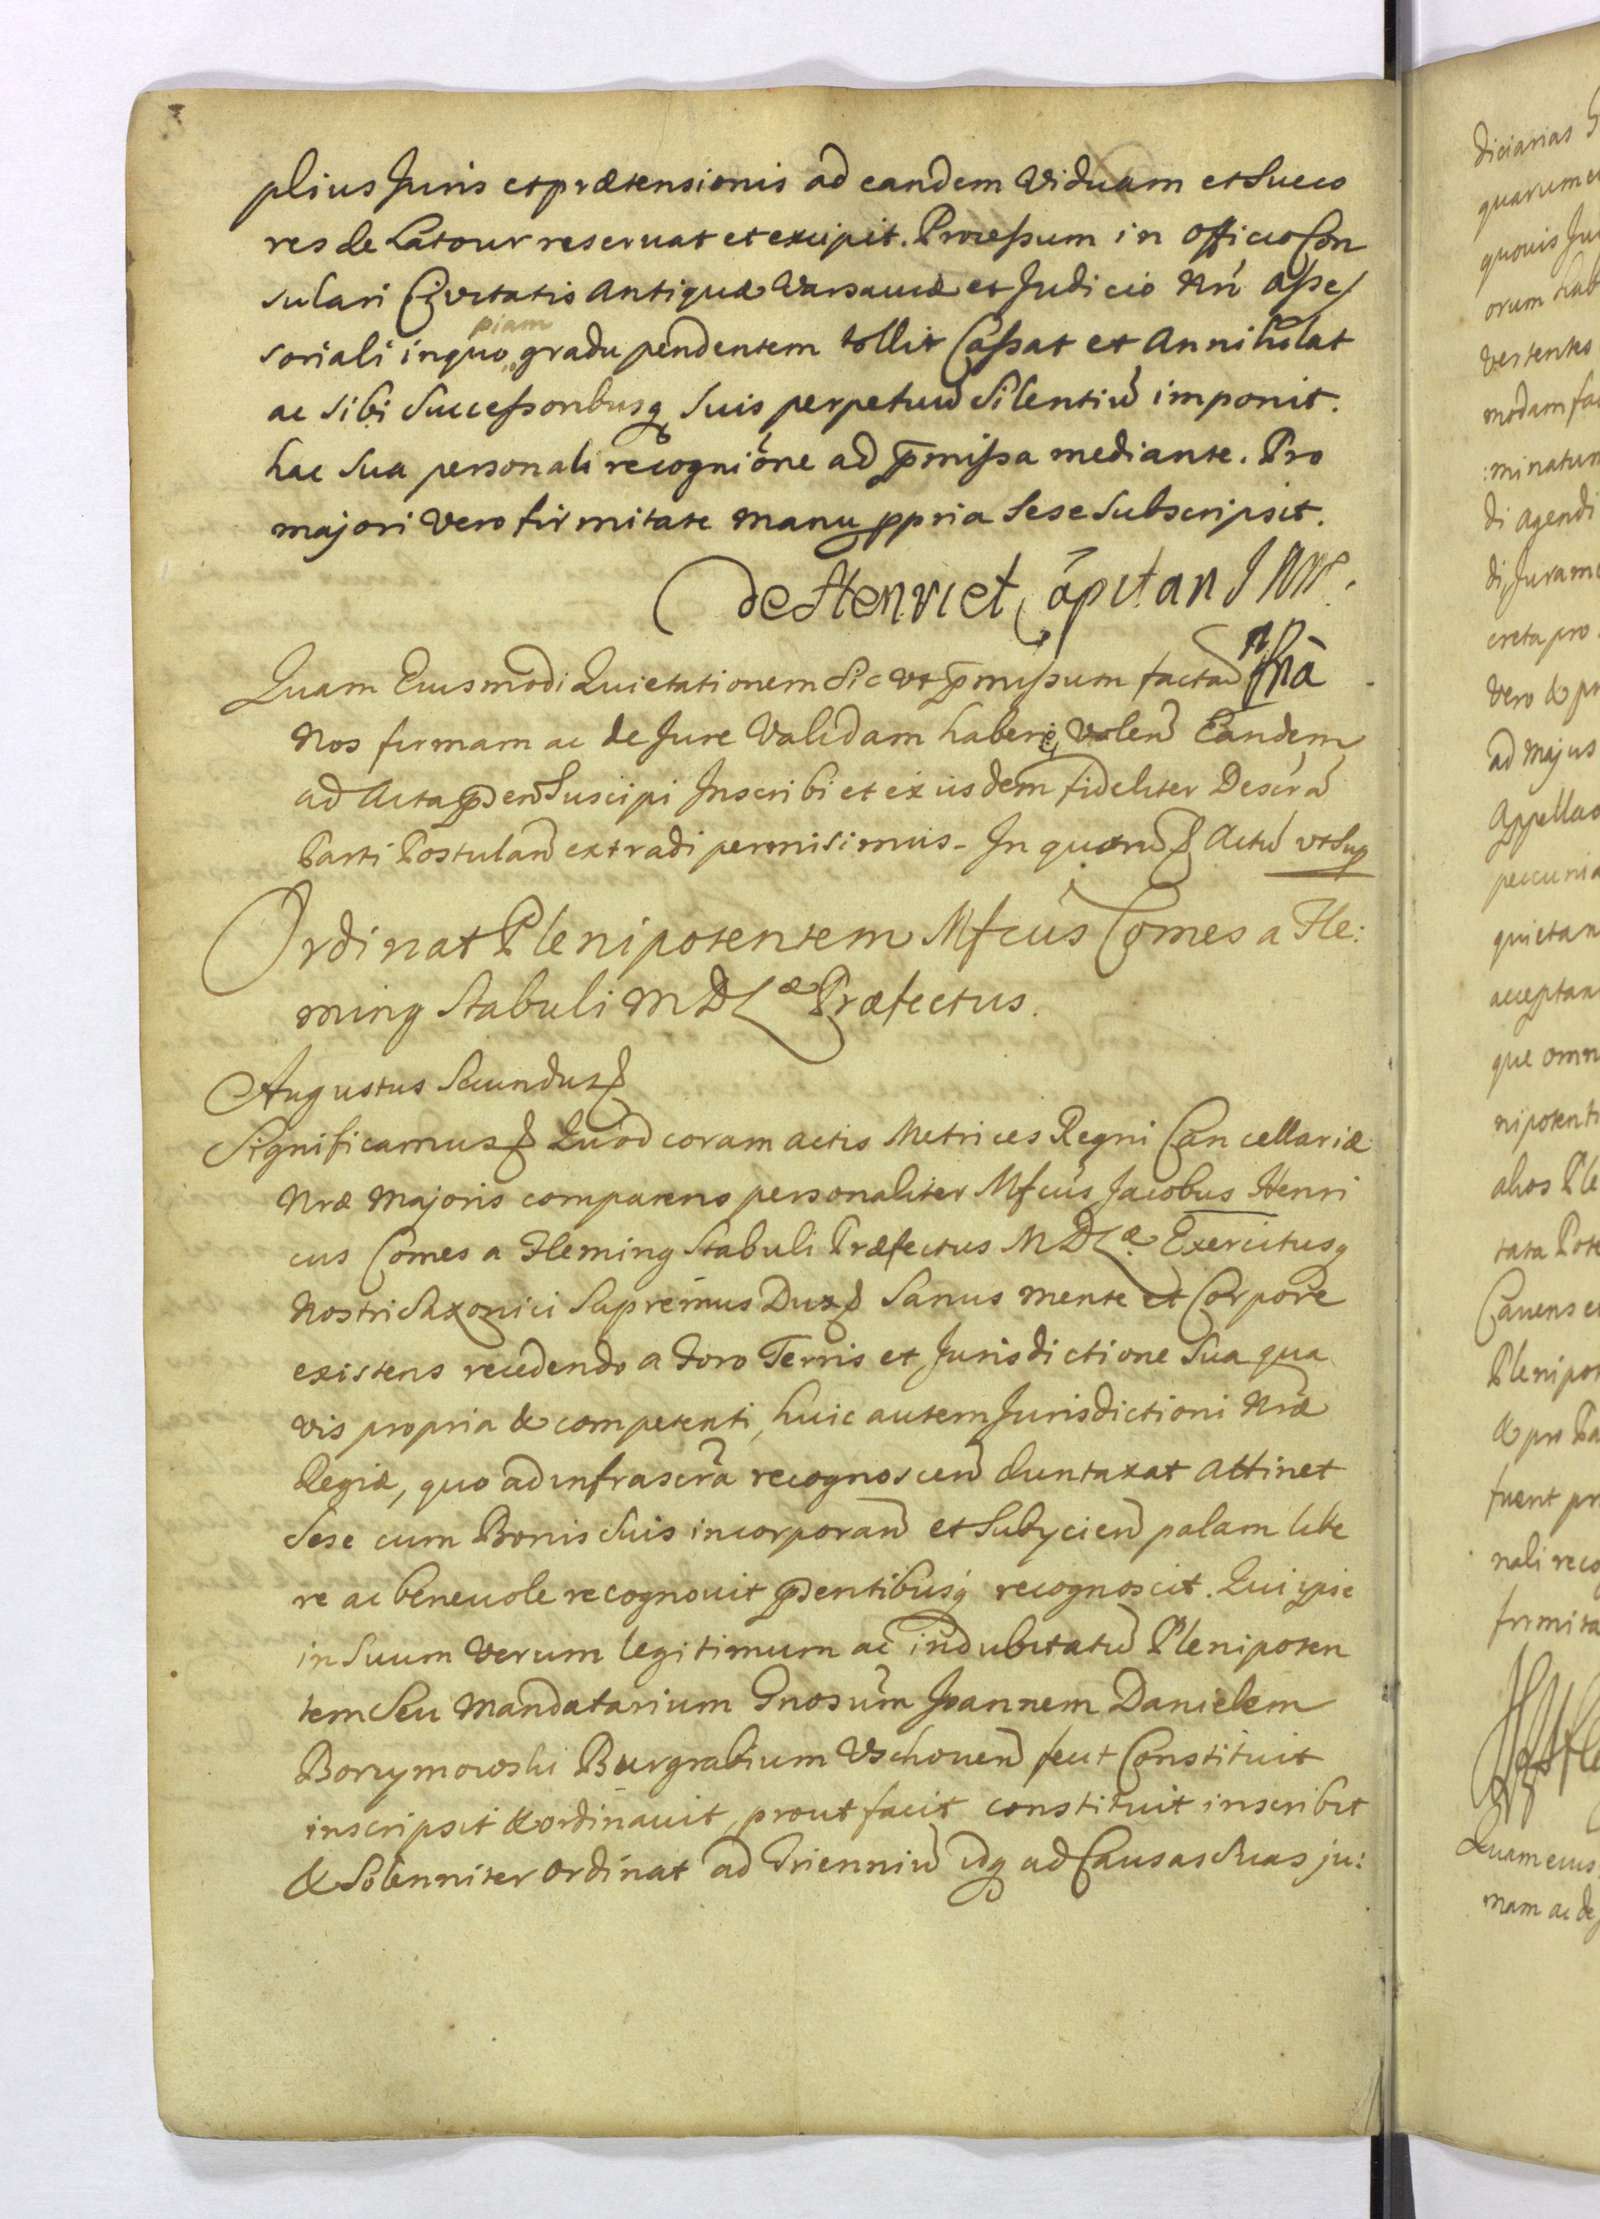 plius Juris et prætensionis ad eandem Viduam et Succo
res de Latour reseruat et excipit. Processum in Officio Con
sulari Civitatis Antiquæ Varsaviæ et Judicio Nrī Asse/
soriali in quo piam gradu pendentem tollit Cassat et Annihilat
ac sibi Successoribusq Suis perpetuū Silentiū imponit.
hac Sua personali recogniōne ad p̄missa mediante. Pro
majori vero firmitate manu ppria Sese Subscripsit.
de Henriet Capitan
Quam Eiusmodi Quietationem Sic vt p̄missum factā
Nos firmam ac de Jure Validam habere Volen̄ Eandem
ad Acta p̄sen̄ Suscipi Inscribi et ex iisdem fideliter Descrā
Parti Postulan̄ extradi permisimus - In quorū Actū vt Sup
Ordinat Plenipotentem Mfcus Comes a Fle:
ming Stabuli M D Læ Præfectus.
Augustus Secundus
Significamus Quod coram actis Metrices Regni Cancellariæ
Nræ Majoris comparens personaliter Mfcus Jacobus Henri
cus Comes a Fleming Stabuli Præfectus M D Læ Exercitusq
Nostri Saxonici Supremus Dux Sanus mente et Corpore
existens recedendo a Foro Terris et Jurisdictione Sua qua
vis propria & competenti, huic autem Jurisdictioni Nræ
Regiæ, quo ad infrascrā recognoscen̄ duntaxat attinet
Sese cum Bonis Suis incorporan̄ et Subycien̄ palam libe
re ac beneuole recognouit p̄sentibusq recognoscit. Qui ipse
in Suum Verum legitimum ac indubitatū Plenipoten
tem Seu Mandatarium Gnosum Joannem Danielem
Borzymowski Burgrabium Vschouen̄ fecit Constituit
inscripsit & ordinauit, prout facit constituit inscribit
& Solenniter Ordinat ad Trienniū idq ad Causas Suas ju:
diciarias
quarumcu
quouis Ju
orum hab
Vertentes
modam fa
:minatum
di agendi
di, Jurame
creta pro
Vero & pr
ad majus
Appellao
peccunia
quietan
acceptan
que omn
nipotenti
alios Ple
tata Pote
Cauens e
Plenipot
& pro Pa
fuerit pr
nali reco
firmita
Quam eius
mam ac de